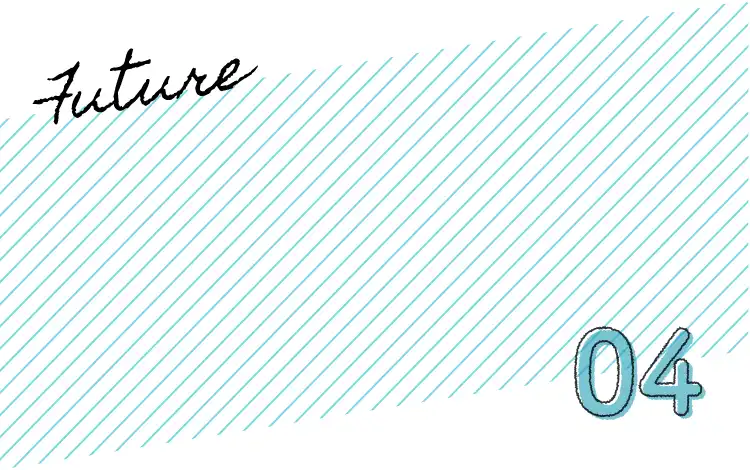 Future
04